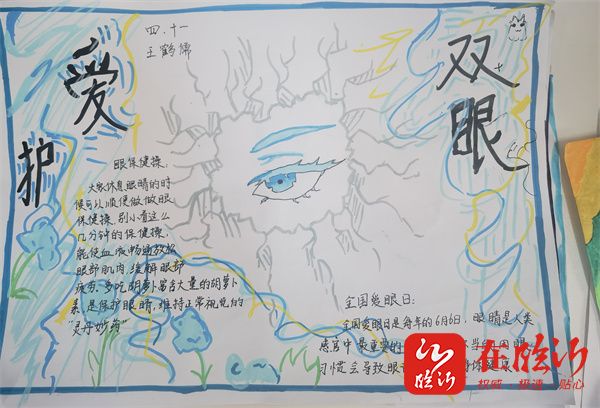 爱护
双眼
四.十一
王鹤儒
眼保健操:
大家休息眼睛的时
候可以顺便做做眼
保健操,别小看这么
几分钟的保健操,
能使血液畅通放松
眼部肌肉,缓解眼部
疲劳。多吃胡萝卜富含大量的胡萝卜
素,是保护眼睛,维持正常视觉的
“灵丹妙药”
全国爱眼日:
全国爱眼日是每年的6月6日,眼睛是人类
感官中最重要的
习惯会导致眼
在临沂
临沂
权威·极速·贴心